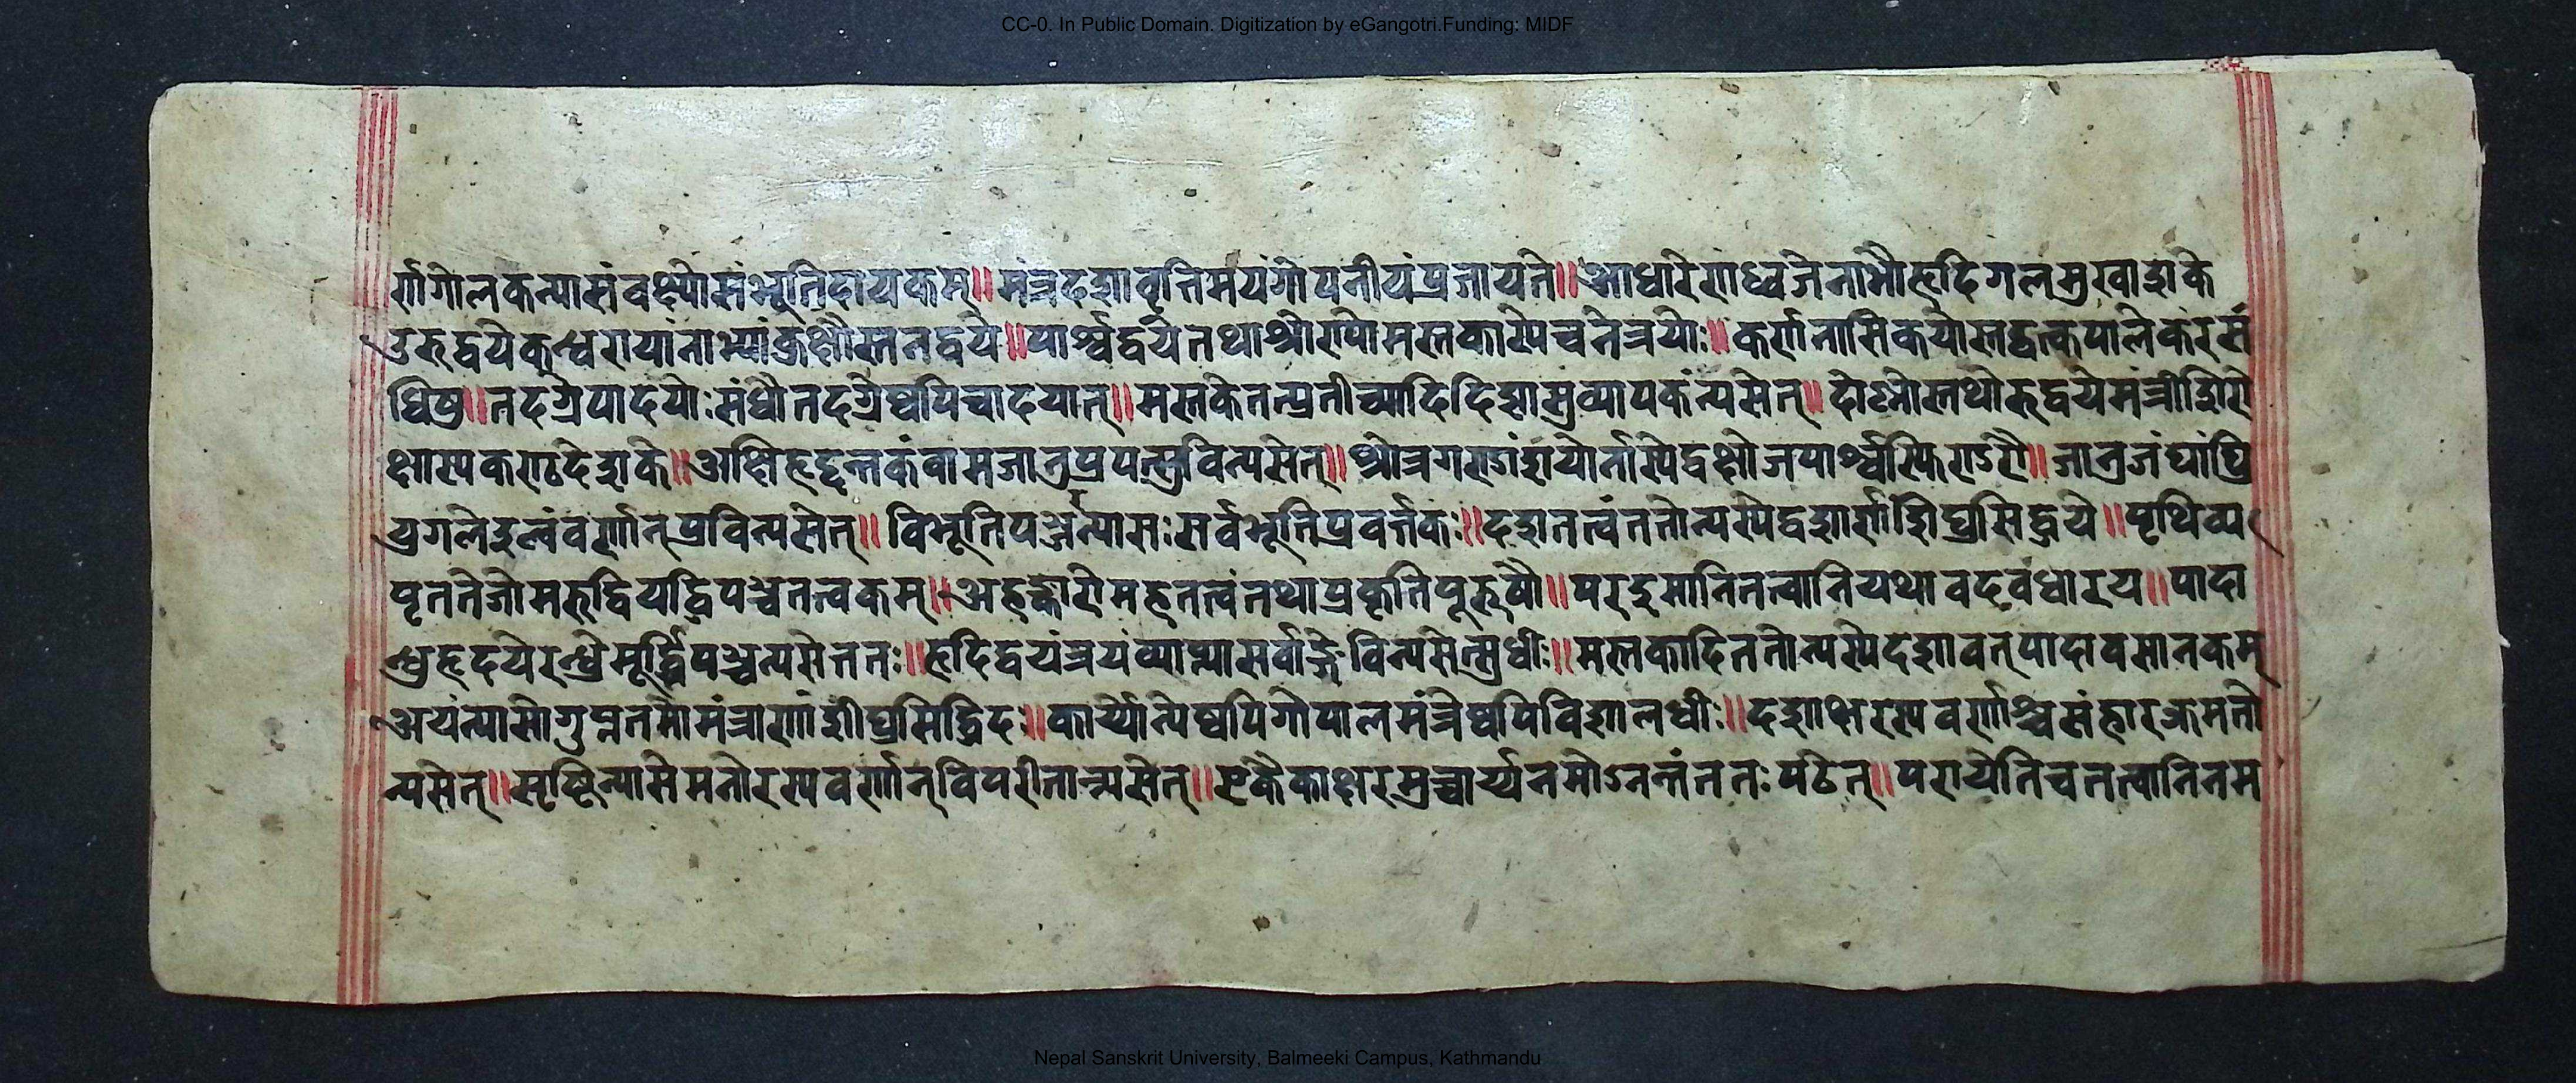 CC-0. In Public Domain. Digitization by eGangotri.Funding: MIDF
र्णगोलकन्यासंवक्ष्येसंभूतिदायकम्॥मंत्रदशावृत्तिमयंगोपनीयंप्रजायते॥आधारेराध्वजेनाभौहृदिगलमुखांशके
उरुद्वयेकन्धरायांनाभ्यांकुक्षौस्तनद्वये॥पार्श्वद्वयेतथाश्रोण्योमस्तकास्येचनेत्रयोः॥कर्णनासिकयोस्तद्वत्कपालेकरसं
धिषु॥तदग्रेपादयोःसंधौतदग्रेष्वपिचादयात्॥मस्तकेतत्प्रतीच्यादिदिक्षुव्यापकंन्यसेत्॥दोष्णोस्तथोरुद्वयेमंत्रीशिरो
क्षास्यकण्ठदेशके॥अक्षिहृद्दन्तकंवामजानुप्रपत्सुविन्यसेत्॥श्रोत्रगण्डांशयोर्न्यस्येद्वक्षोजपार्श्वस्फिगूरौ॥जानुजंघांघ्रि
युगलेइत्थंवर्णान्प्रविन्यसेत्॥विभूतिपञ्जरन्यासःसर्वभूतिप्रवर्त्तकः॥दशतत्वंततोन्यस्येद्दशार्णशीघ्रसिद्धये॥पृथिव्य
पृततेजोमरुद्वियद्धिपञ्चतत्वकम्॥अहङ्कारोमहतत्वंतथाप्रकृतिपूरुषौ॥परइमानितत्वानियथावदवधारय॥पादा
न्धुहृदयेरन्ध्रेमूर्द्ध्निपञ्चन्यसेत्ततः॥हृदिद्वयंत्रयंव्याप्त्यासर्वाङ्गेविन्यसेत्सुधीः॥मस्तकादिततोन्यस्येदशावत्पादावसानकम्
अयंन्यासोगुप्ततमोमंत्राणांशीघ्रसिद्धिदः॥कार्य्योन्येष्वपिगोपालमंत्रेष्वपिविशालधीः॥दशाक्षरस्यवर्णाश्चसंहारक्रमतो
न्यसेत्॥सृष्टिन्यासेमनोरस्यवर्णान्विपरीतान्न्यसेत्॥एकैकाक्षरमुच्चार्य्यनमोऽनन्तंततःपठेत्॥परायेतिचतत्वानिनम
Nepal Sanskrit University, Balmeeki Campus, Kathmandu